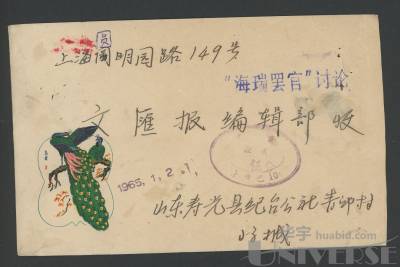 员
上海圆明园路149号
"海瑞罢官"讨论
文汇报编辑部收
1965.1.2.1.
山东寿光县纪台公社青邱村
华宇 huabid.com
UNIVERSE